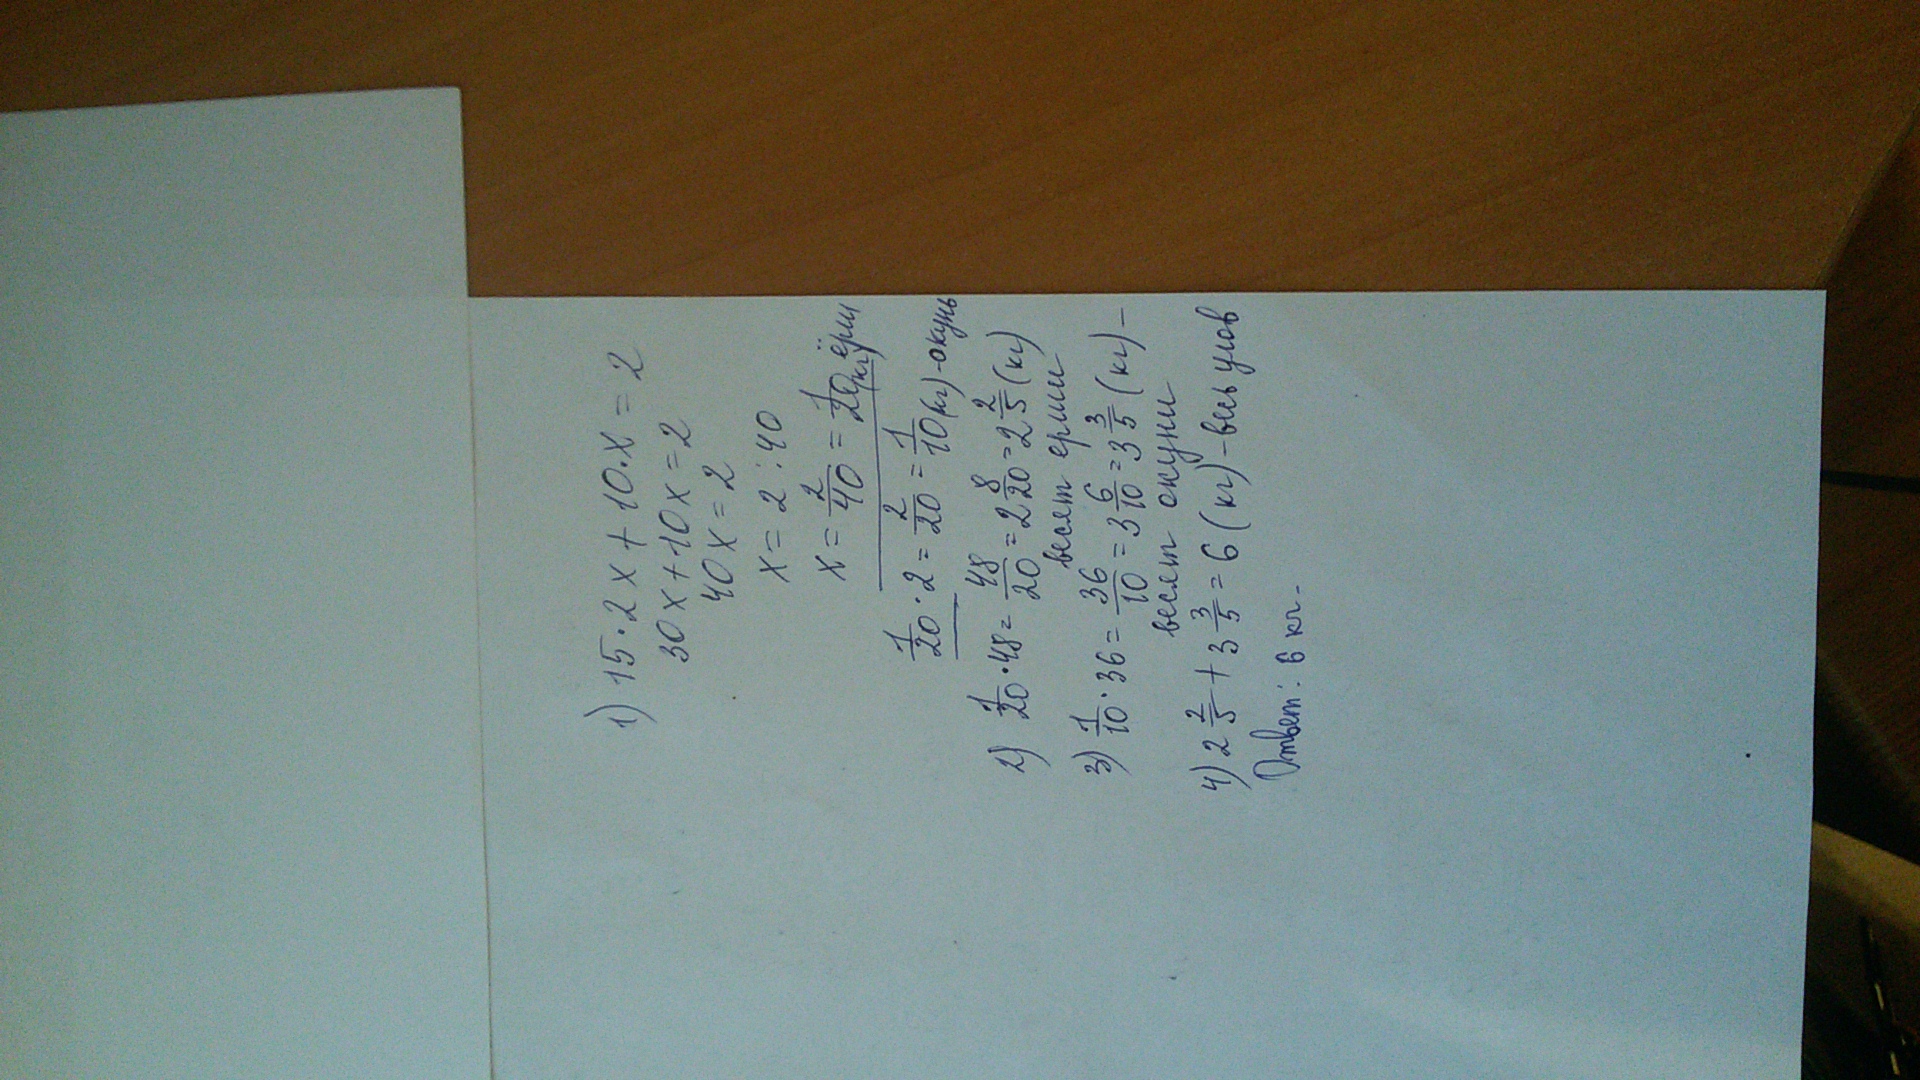 1) 15·2x + 10·x = 2
30x + 10x = 2
40x = 2
x = 2 : 40
x = 2/40 = 1/20 (кг) ёрш
1/20 · 2 = 2/20 = 1/10 (кг) - окунь
2) 1/20 · 48 = 48/20 = 2 8/20 = 2 2/5 (кг)
весят ерши
3) 1/10 · 36 = 36/10 = 3 6/10 = 3 3/5 (кг) –
весят окуни
4) 2 2/5 + 3 3/5 = 6 (кг) - весь улов
Ответ: 6 кг.